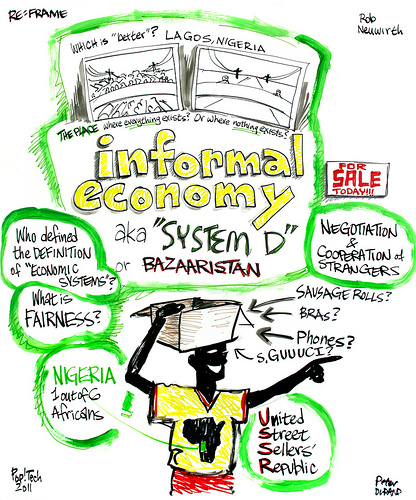 RE:FRAME
Rob
Neuwirth
WHICH is "better"? LAGOS, NIGERIA
THE PLACE where everything exists? Or where nothing exists?
informal
economy
FOR
SALE
TODAY!!!
aka "SYSTEM D"
or BAZAARISTAN
Who defined
the DEFINITION
of "ECONOMIC
SYSTEMS"?
NEGOTIATION
&
COOPERATION of
STRANGERS
What is
FAIRNESS?
SAUSAGE ROLLS?
BRAS?
Phones?
S, GUUUCI?
NIGERIA
1 out of 6
Africans
United
Street
Sellers'
Republic
Pop!Tech
2011
Peter
DURAND